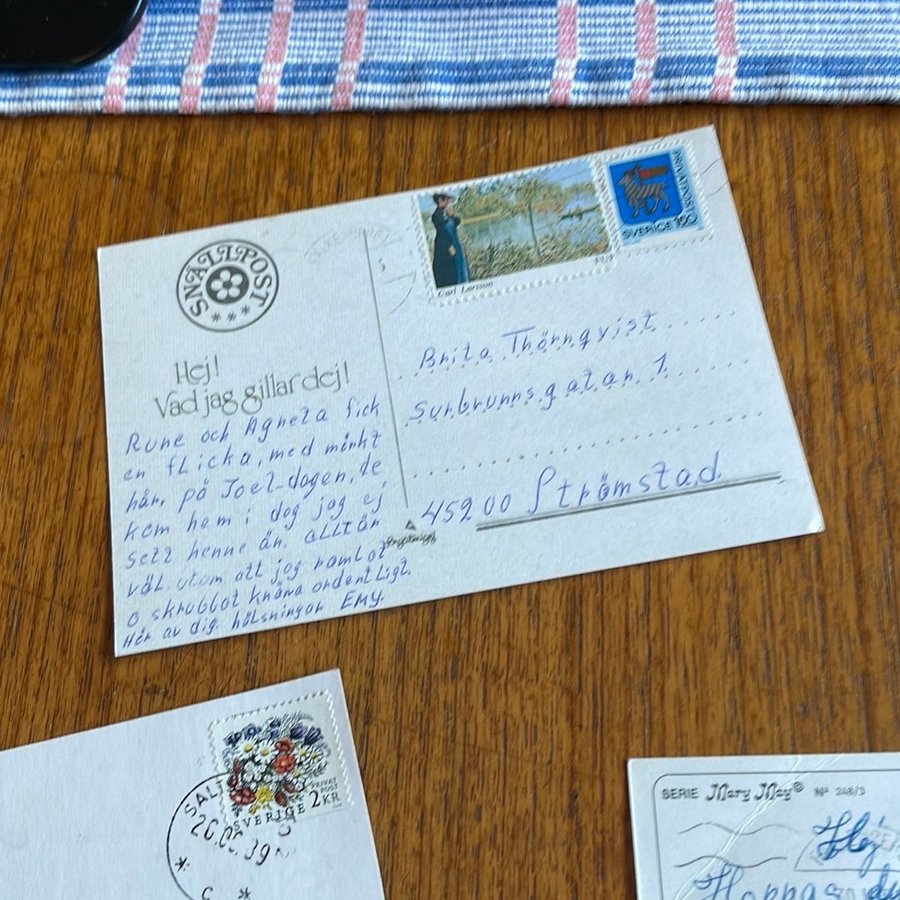 SNÄLLPOST
Hej!
Vad jag gillar dej!
Rune och Agneta fick
en flicka, med mörkt
hår, på Joel-dagen, de
kom hem i dag jag ej
sett henne än. allt är
väl. utom att jag ramlat
o skrubbat knäna ordentligt.
Hör av dig. hälsningar Emy.
Carl Larsson
PRIVATPOST
SVERIGE 180
Brita Thörnqvist
Surbrunnsgatan 1
452 00 Strömstad
SALT
PRIVAT
POST
SVERIGE 2KR
SERIE Mary May® No 248/3
Hej
Hoppas du